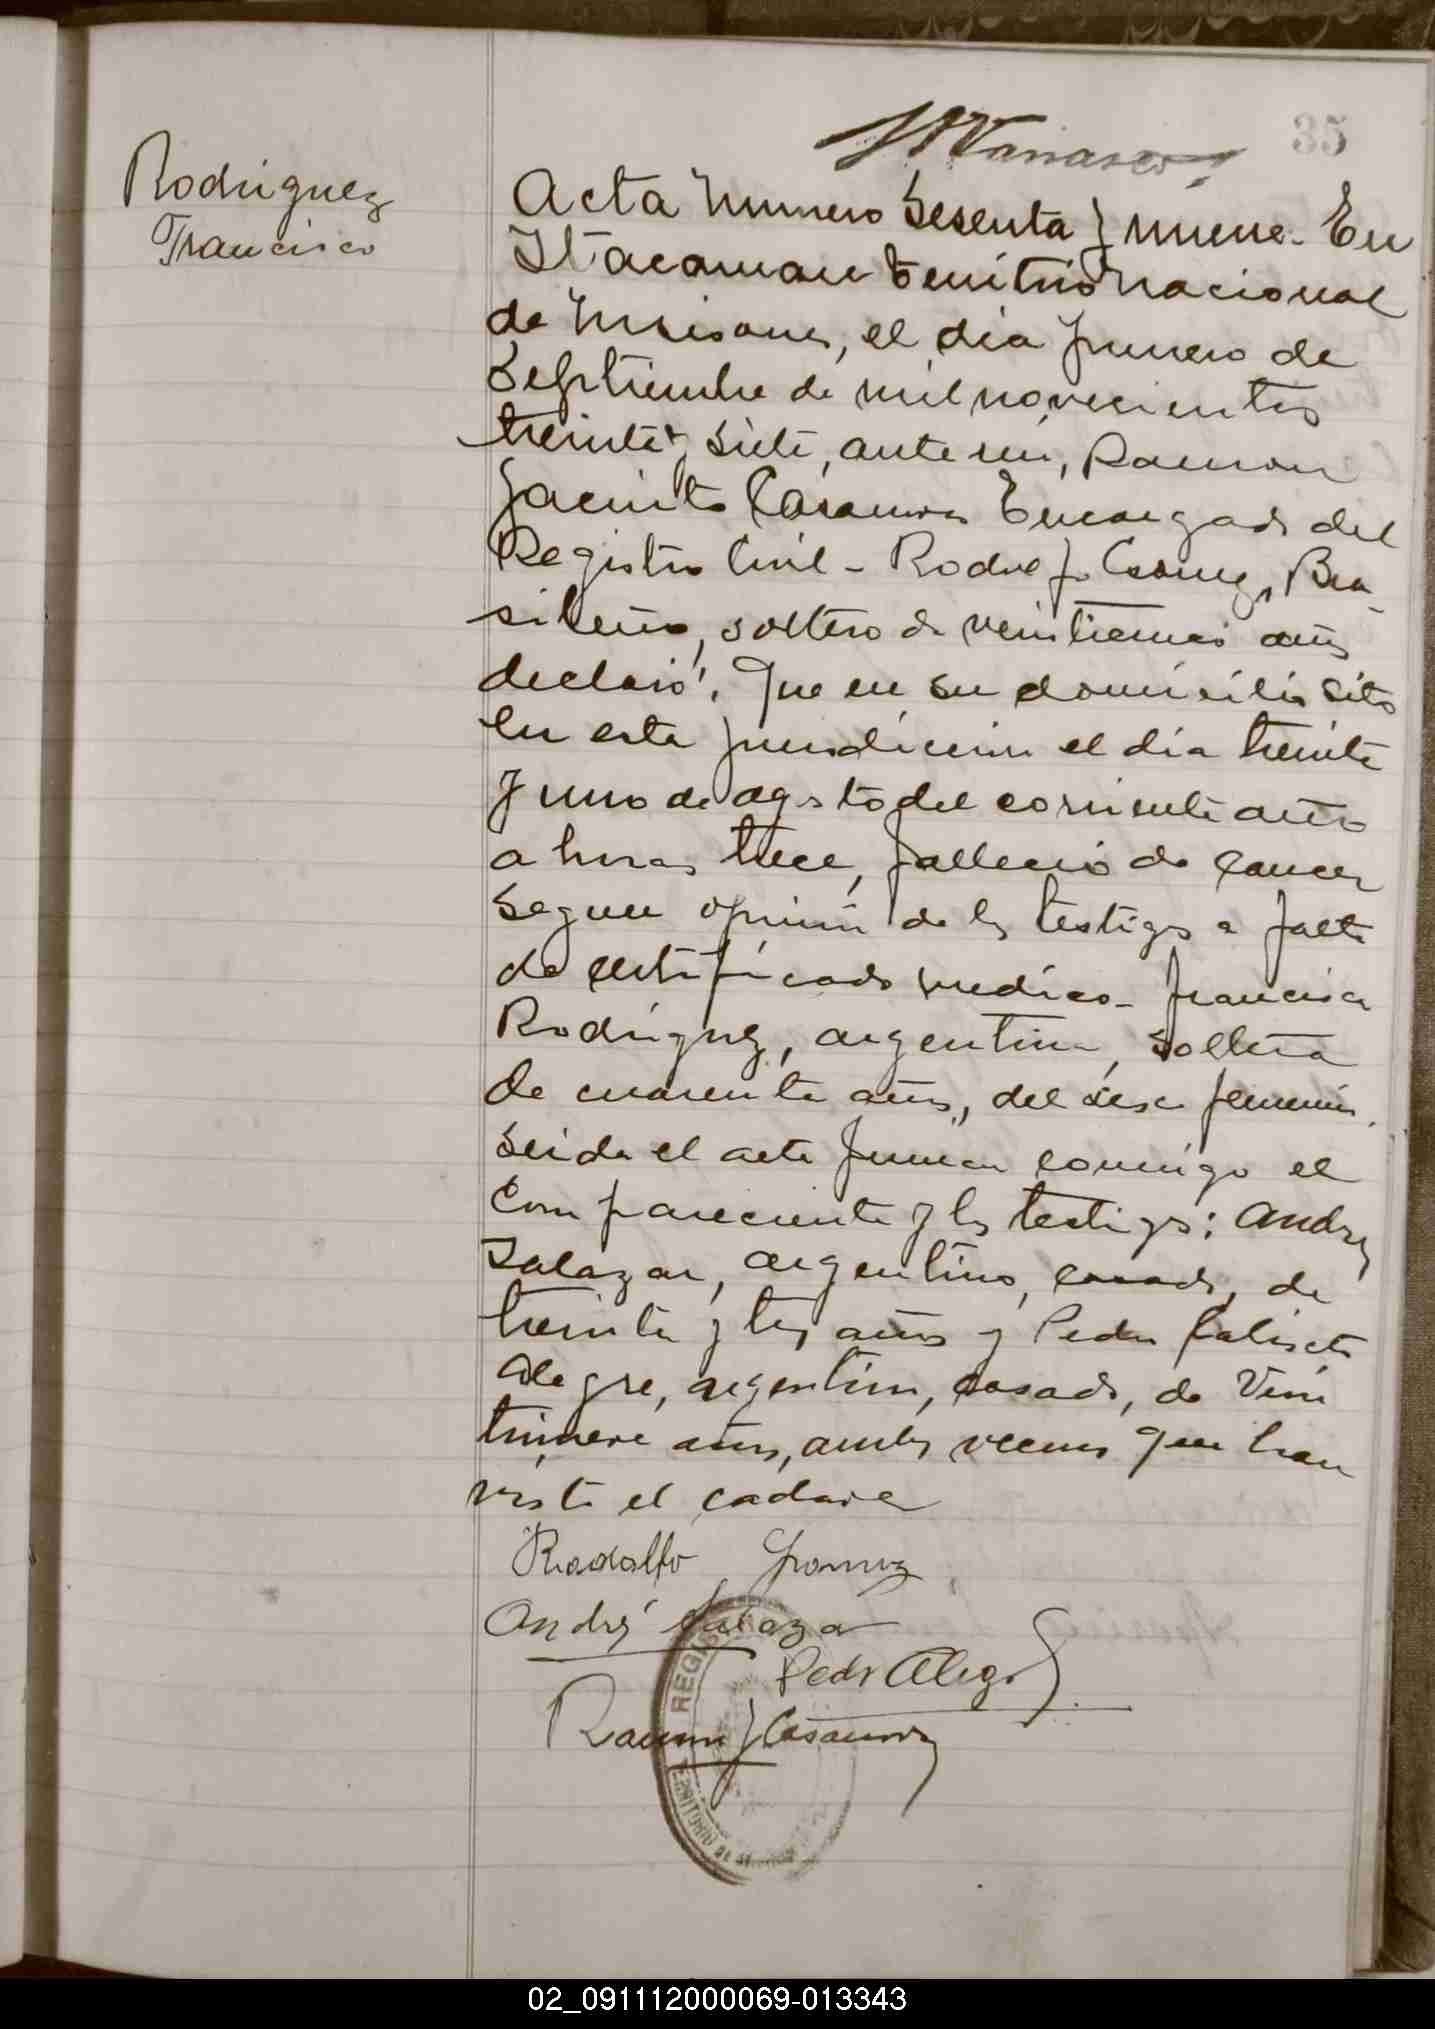 35
Rodriguez
Francisco
Acta Numero Sesenta y nueve. En
Itacaruare Territorio Nacional
de Misiones, el dia primero de
Septiembre de mil novecientos
treinta y siete, ante mi, Ramon
Jacinto Casanova Encargado del
Registro Civil - Rodolfo Gomez, Bra-
sileño, soltero de veintitres años
declaró: Que en su domicilio sito
en esta jurisdiccion el dia treinta
y uno de agosto del corriente año
a horas trece, fallecio de cancer
segun opinion de los testigos a falta
de certificado medico - Francisca
Rodriguez, argentina, soltera
de cuarenta años, del sexo femenino.
Leida el acta firman conmigo el
compareciente y los testigos: Andres
Salazar, argentino, casado, de
treinta y tres años y Pedro Calixto
Alegre, argentino, casado, de Vein
tinueve años, ambos vecinos que han
visto el cadaver
Rodolfo Gomez
Andrés Salazar
Pedro Alegre
Ramon J Casanova
REGIS
TERRITORIO DE MISIONES
02_091112000069-013343